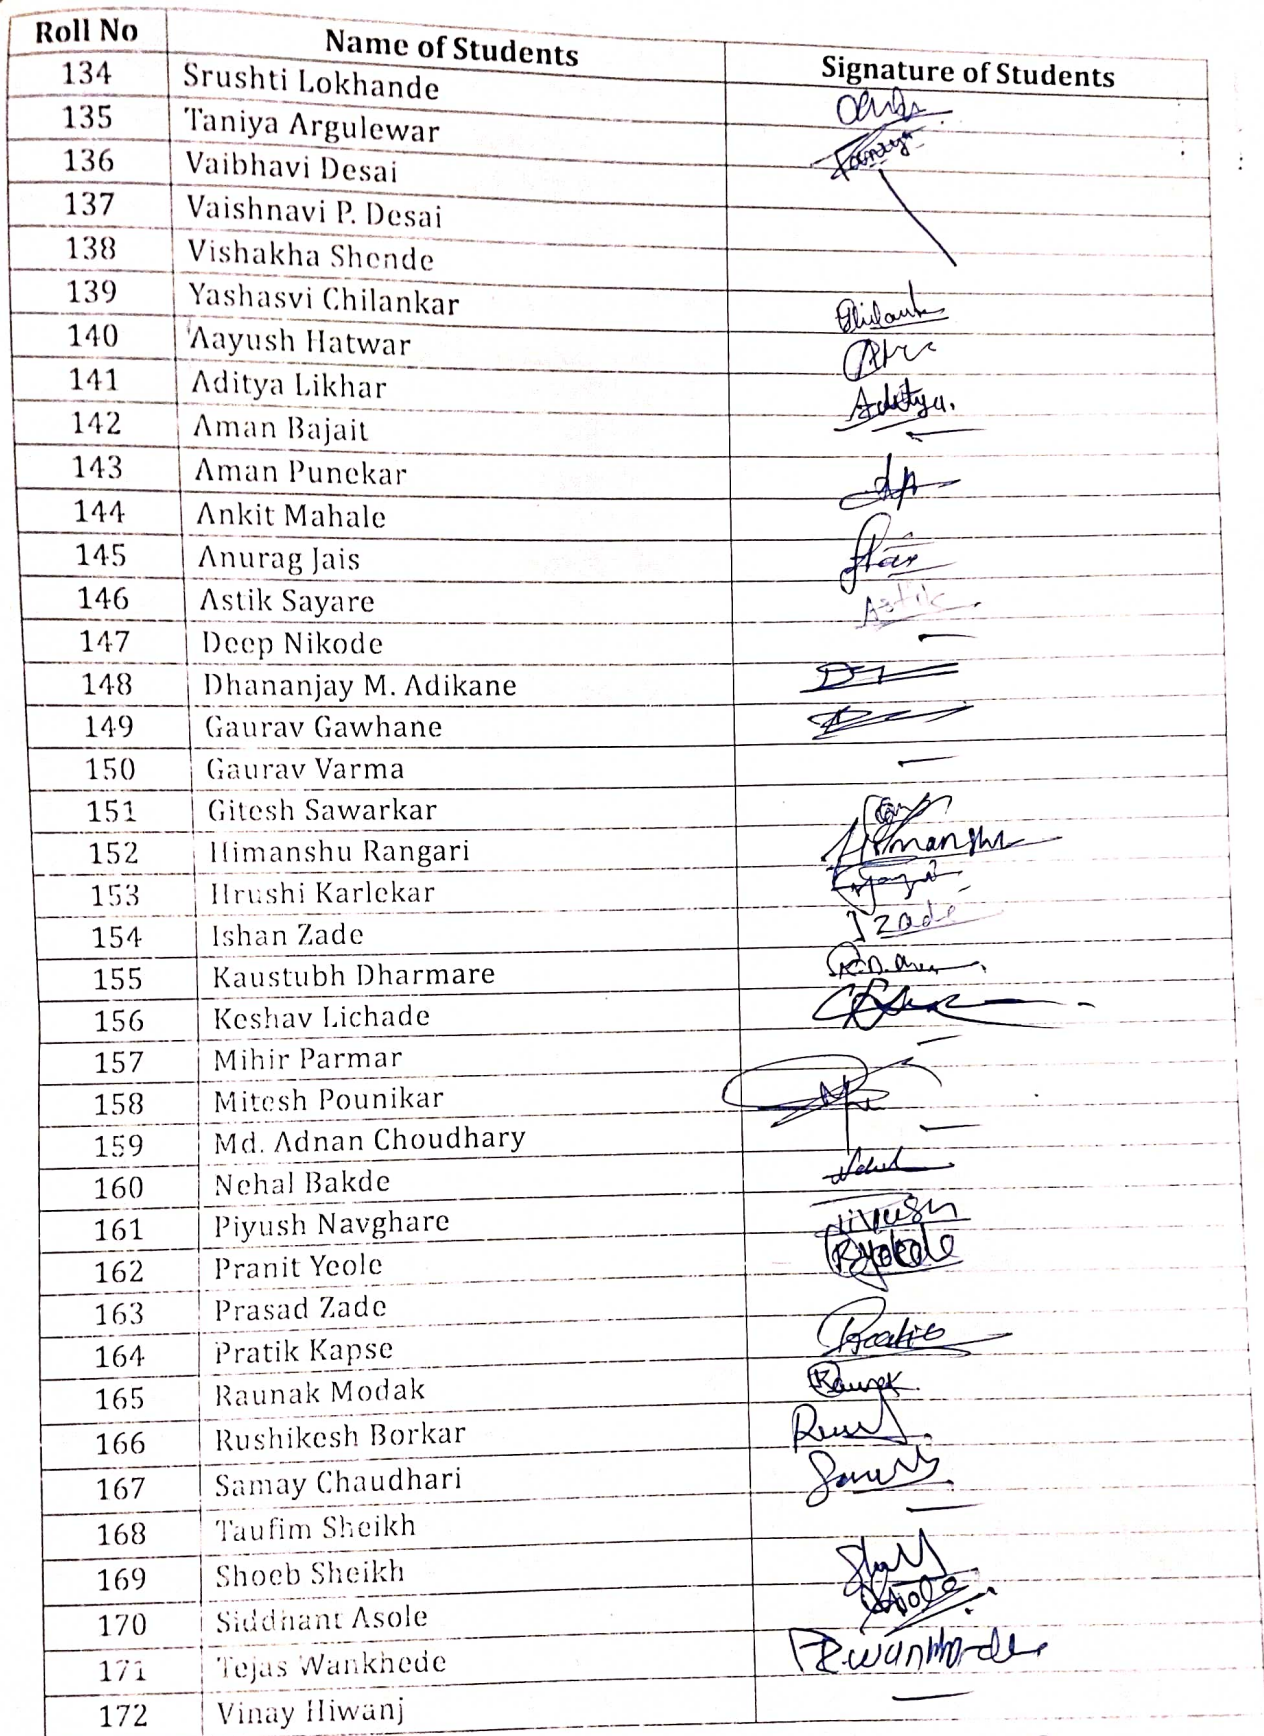 Roll No Name of Students Signature of Students
134 Srushti Lokhande
135 Taniya Argulewar Taniya
136 Vaibhavi Desai
137 Vaishnavi P. Desai
138 Vishakha Shende
139 Yashasvi Chilankar
140 Aayush Hatwar
141 Aditya Likhar Aditya.
142 Aman Bajait
143 Aman Punekar
144 Ankit Mahale
145 Anurag Jais
146 Astik Sayare Astik
147 Deep Nikode
148 Dhananjay M. Adikane
149 Gaurav Gawhane
150 Gaurav Varma
151 Gitesh Sawarkar
152 Himanshu Rangari Himanshu
153 Hrushi Karlekar
154 Ishan Zade I Zade
155 Kaustubh Dharmare
156 Keshav Lichade
157 Mihir Parmar
158 Mitesh Pounikar
159 Md. Adnan Choudhary
160 Nehal Bakde
161 Piyush Navghare Piyush
162 Pranit Yeole
163 Prasad Zade
164 Pratik Kapse
165 Raunak Modak Raunak
166 Rushikesh Borkar
167 Samay Chaudhari
168 Taufim Sheikh
169 Shoeb Sheikh
170 Siddhant Asole Asole
171 Tejas Wankhede
172 Vinay Hiwanj